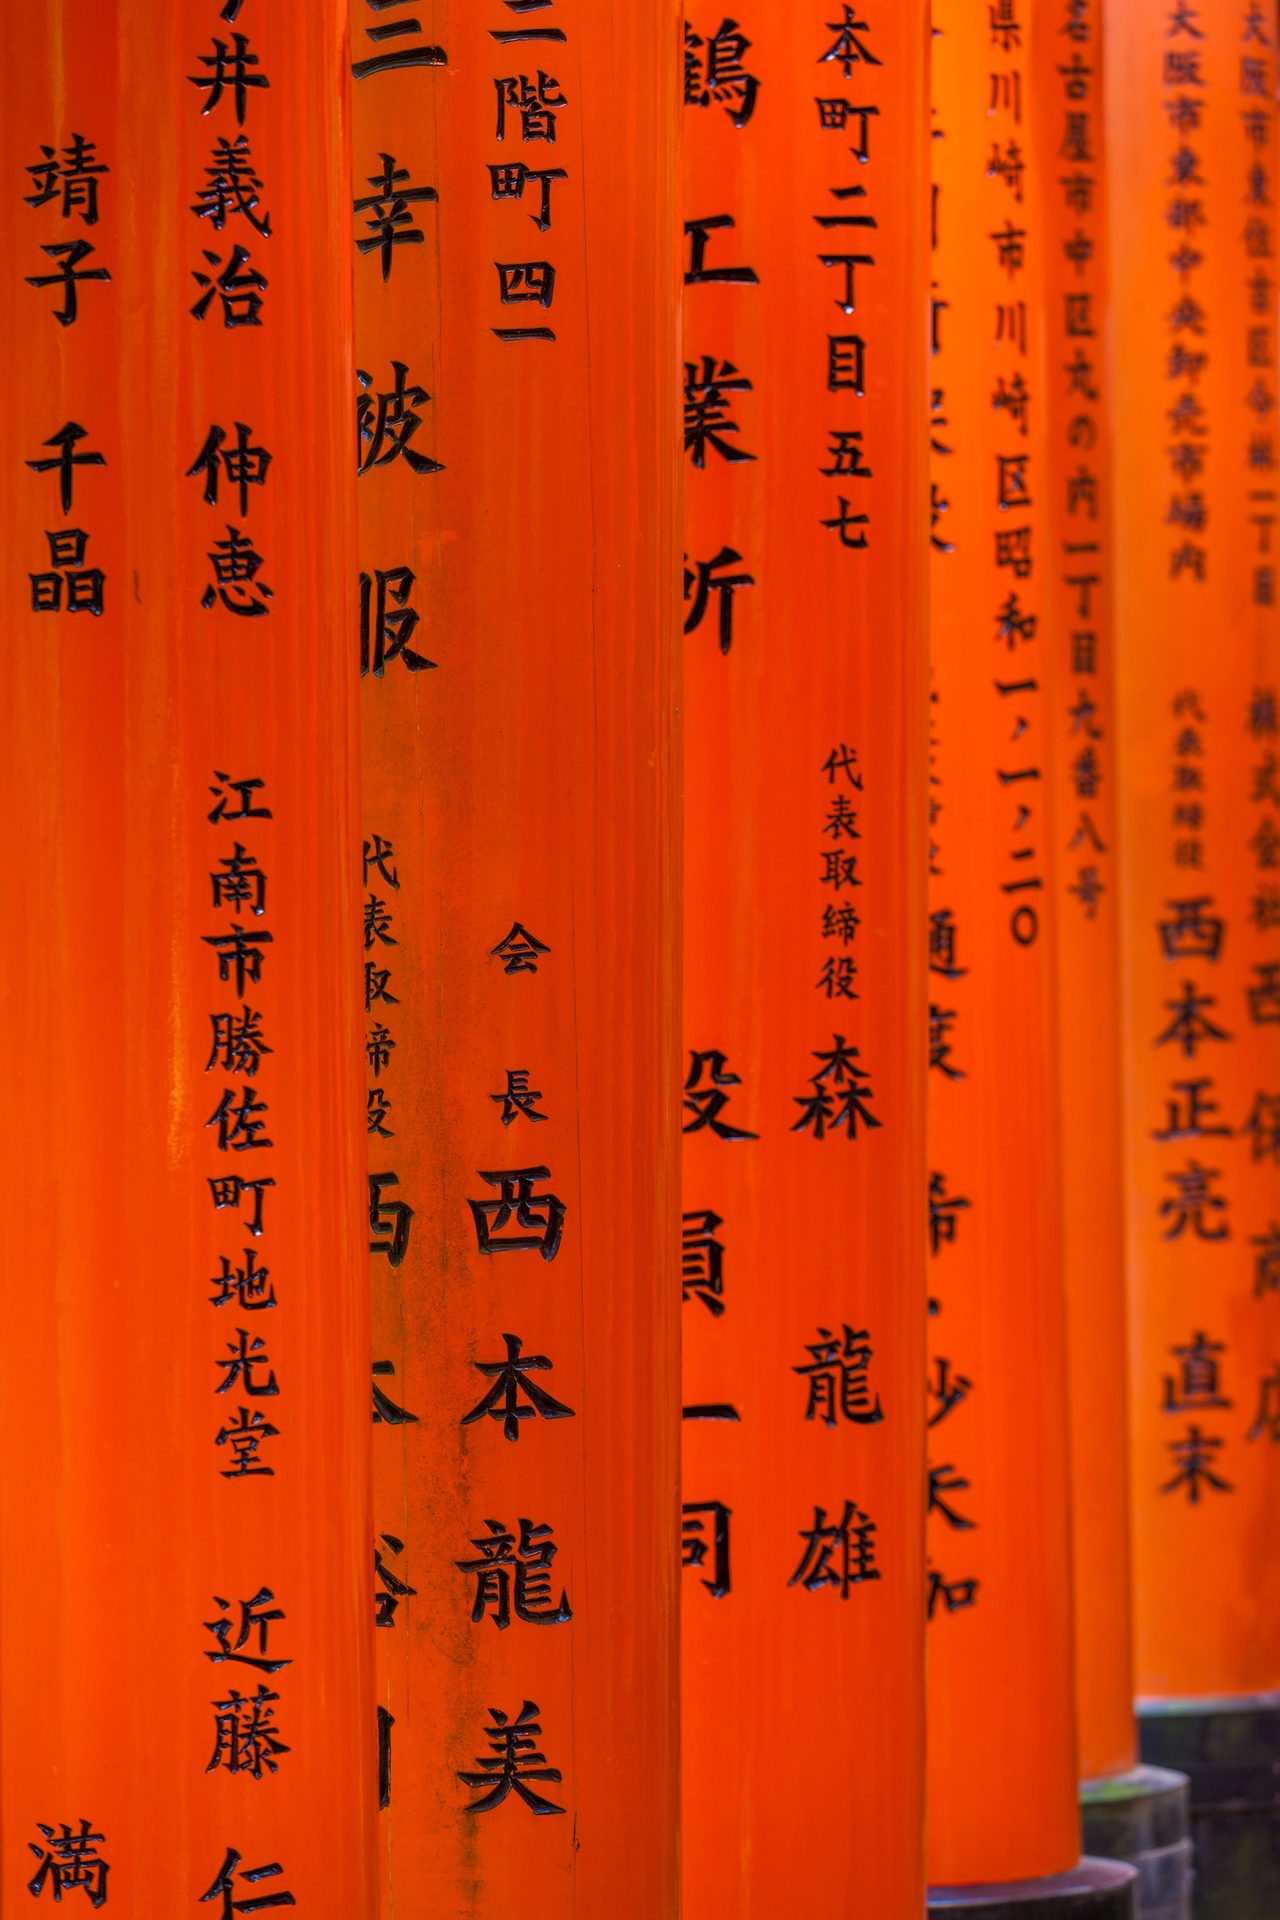 大阪市東住吉区今林一丁目 株式会社西保商店
大阪市東部中央卸売市場内 代表取締役 西本正亮 直末
名古屋市中区丸の内一丁目九番八号
県川崎市川崎区昭和一ノ一ノ二〇
本町二丁目五七 代表取締役 森 龍雄
鶴工業所 役員一同
二階町四一 会長 西本龍美
三幸被服 代表取締役 西本裕
井義治 伸恵 江南市勝佐町地光堂 近藤 仁
靖子 千晶 満